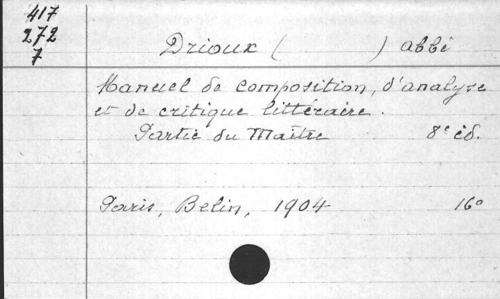 417
272
7
Drioux ( ) abbé
Manuel de composition, d'analyse
et de critique littéraire.
Partie du Maître 8e éd.
Paris, Belin, 1904 16o